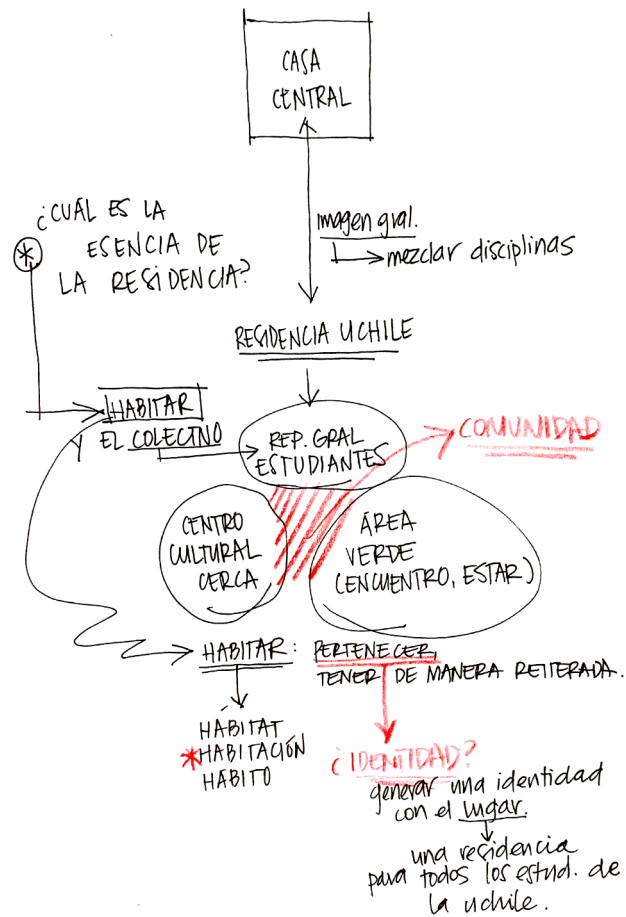 CASA
CENTRAL
¿CUÁL ES LA
ESENCIA DE
LA RESIDENCIA?
*
imagen gral.
mezclar disciplinas
RESIDENCIA UCHILE
HABITAR
Y EL COLECTIVO
REP. GRAL
ESTUDIANTES
COMUNIDAD
CENTRO
CULTURAL
CERCA
ÁREA
VERDE
(ENCUENTRO, ESTAR)
HABITAR: PERTENECER,
TENER DE MANERA REITERADA.
HÁBITAT
*HABITACIÓN
HÁBITO
¿IDENTIDAD?
generar una identidad
con el lugar.
una residencia
para todos los estud. de
la uchile.